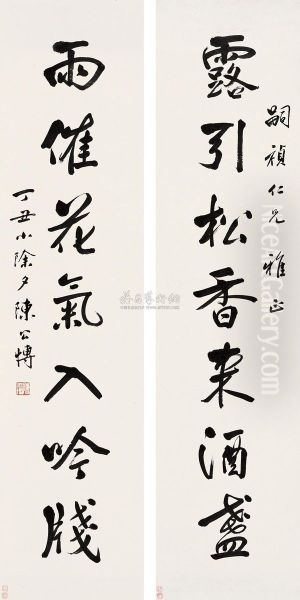 露引松香来酒盏
嗣禎仁兄雅正
雨催花氣入吟牋
丁丑小除夕陳公博